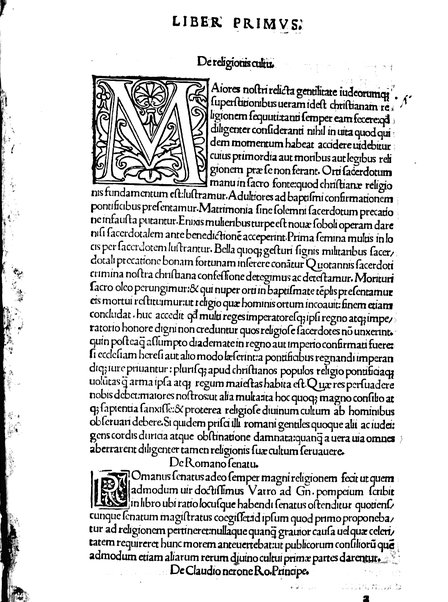 LIBER PRIMVS.
De religionis cultu.
MAiores nostri relicta gentilitate iudeorumq;
superstitionibus ueram idest christianam re
ligionem sequuti tanti semper eam fecere: qd
diligenter consideranti nihil in uita quod qui
dem momentum habeat accidere uidebitur
cuius primordia aut moribus aut legibus reli
gionem præ se non ferant. Orti sacerdotum
manu in sacro fonte: quod christianæ religio
nis fundamentum est: lustramur. Adultiores ad baptismi confirmationem
pontificibus presentamur. Matrimonia sine solemni sacerdotum precatio
ne infausta putantur. Enixos mulieribus turpe est nouæ soboli operam dare
nisi sacerdotalem ante benedictionē acceperint. Prima semina multis in lo
cis per sacerdotem lustrantur. Bella quoq; gesturi signis militaribus sacer/
dotali precatione bonam fortunam inserere conātur Quotannis sacerdoti
crimina nostra christiana confessione detegimus ac detestamur. Morituri
sacro oleo perungimur: & qui nuper orti in baptismate tēplis presentamur
eis mortui restituimur: ut religio quæ hominis ortum incoauit: finem etiam
concludat. huc accedit qd multi reges imperatoresq; ipsi regno atq; impe/
ratorio honore digni non creduntur quos religiose sacerdotes nō unxerint.
quin postea assumpto diademate in regno aut imperio confirmati fuere:
si ecclesiam heresi aut alio modo læserint: a pontificibus regnandi imperan
diq; iure priuantur: plurisq; apud christianos populos religio pontificiaq;
uolūtas q̄ arma ipsa atq; regum maiestas habita est. Quæ res persuadere
nobis debet: maiores nostros ut alia multa: ita hoc quoq; magno consilio at
q; sapientia sanxisse: & proterea religiose diuinum cultum ab hominibus
obseruari debere. Si quidem prisci illi romani gentiles quoque alii ac iudei:
gens cordis duricia atque obstinatione damnata: quanq̄ a uera uia omnes
aberrarent diligenter tamen religionis suæ cultum seruauere.
De Romano senatu.
ROmanus senatus adeo semper magni religionem fecit ut quem
admodum uir doctissimus Varro ad Gn. pompeium scribit
in libro ubi ratio locusque habendi senatus ostenditur quotiens
cunque senatum magistratus coegisset: id ipsum quod primo proponeba/
tur ad religionem pertineret: nullaque quanq̄ grauior causa uel quæ celeri/
tatem requireret hunc morem anteuertebat: ut publicorum consiliorū quē
admodum etiam aliarum rerum diuino cultui primæ partes darentur.
De Claudio nerone Ro. Principe.
a